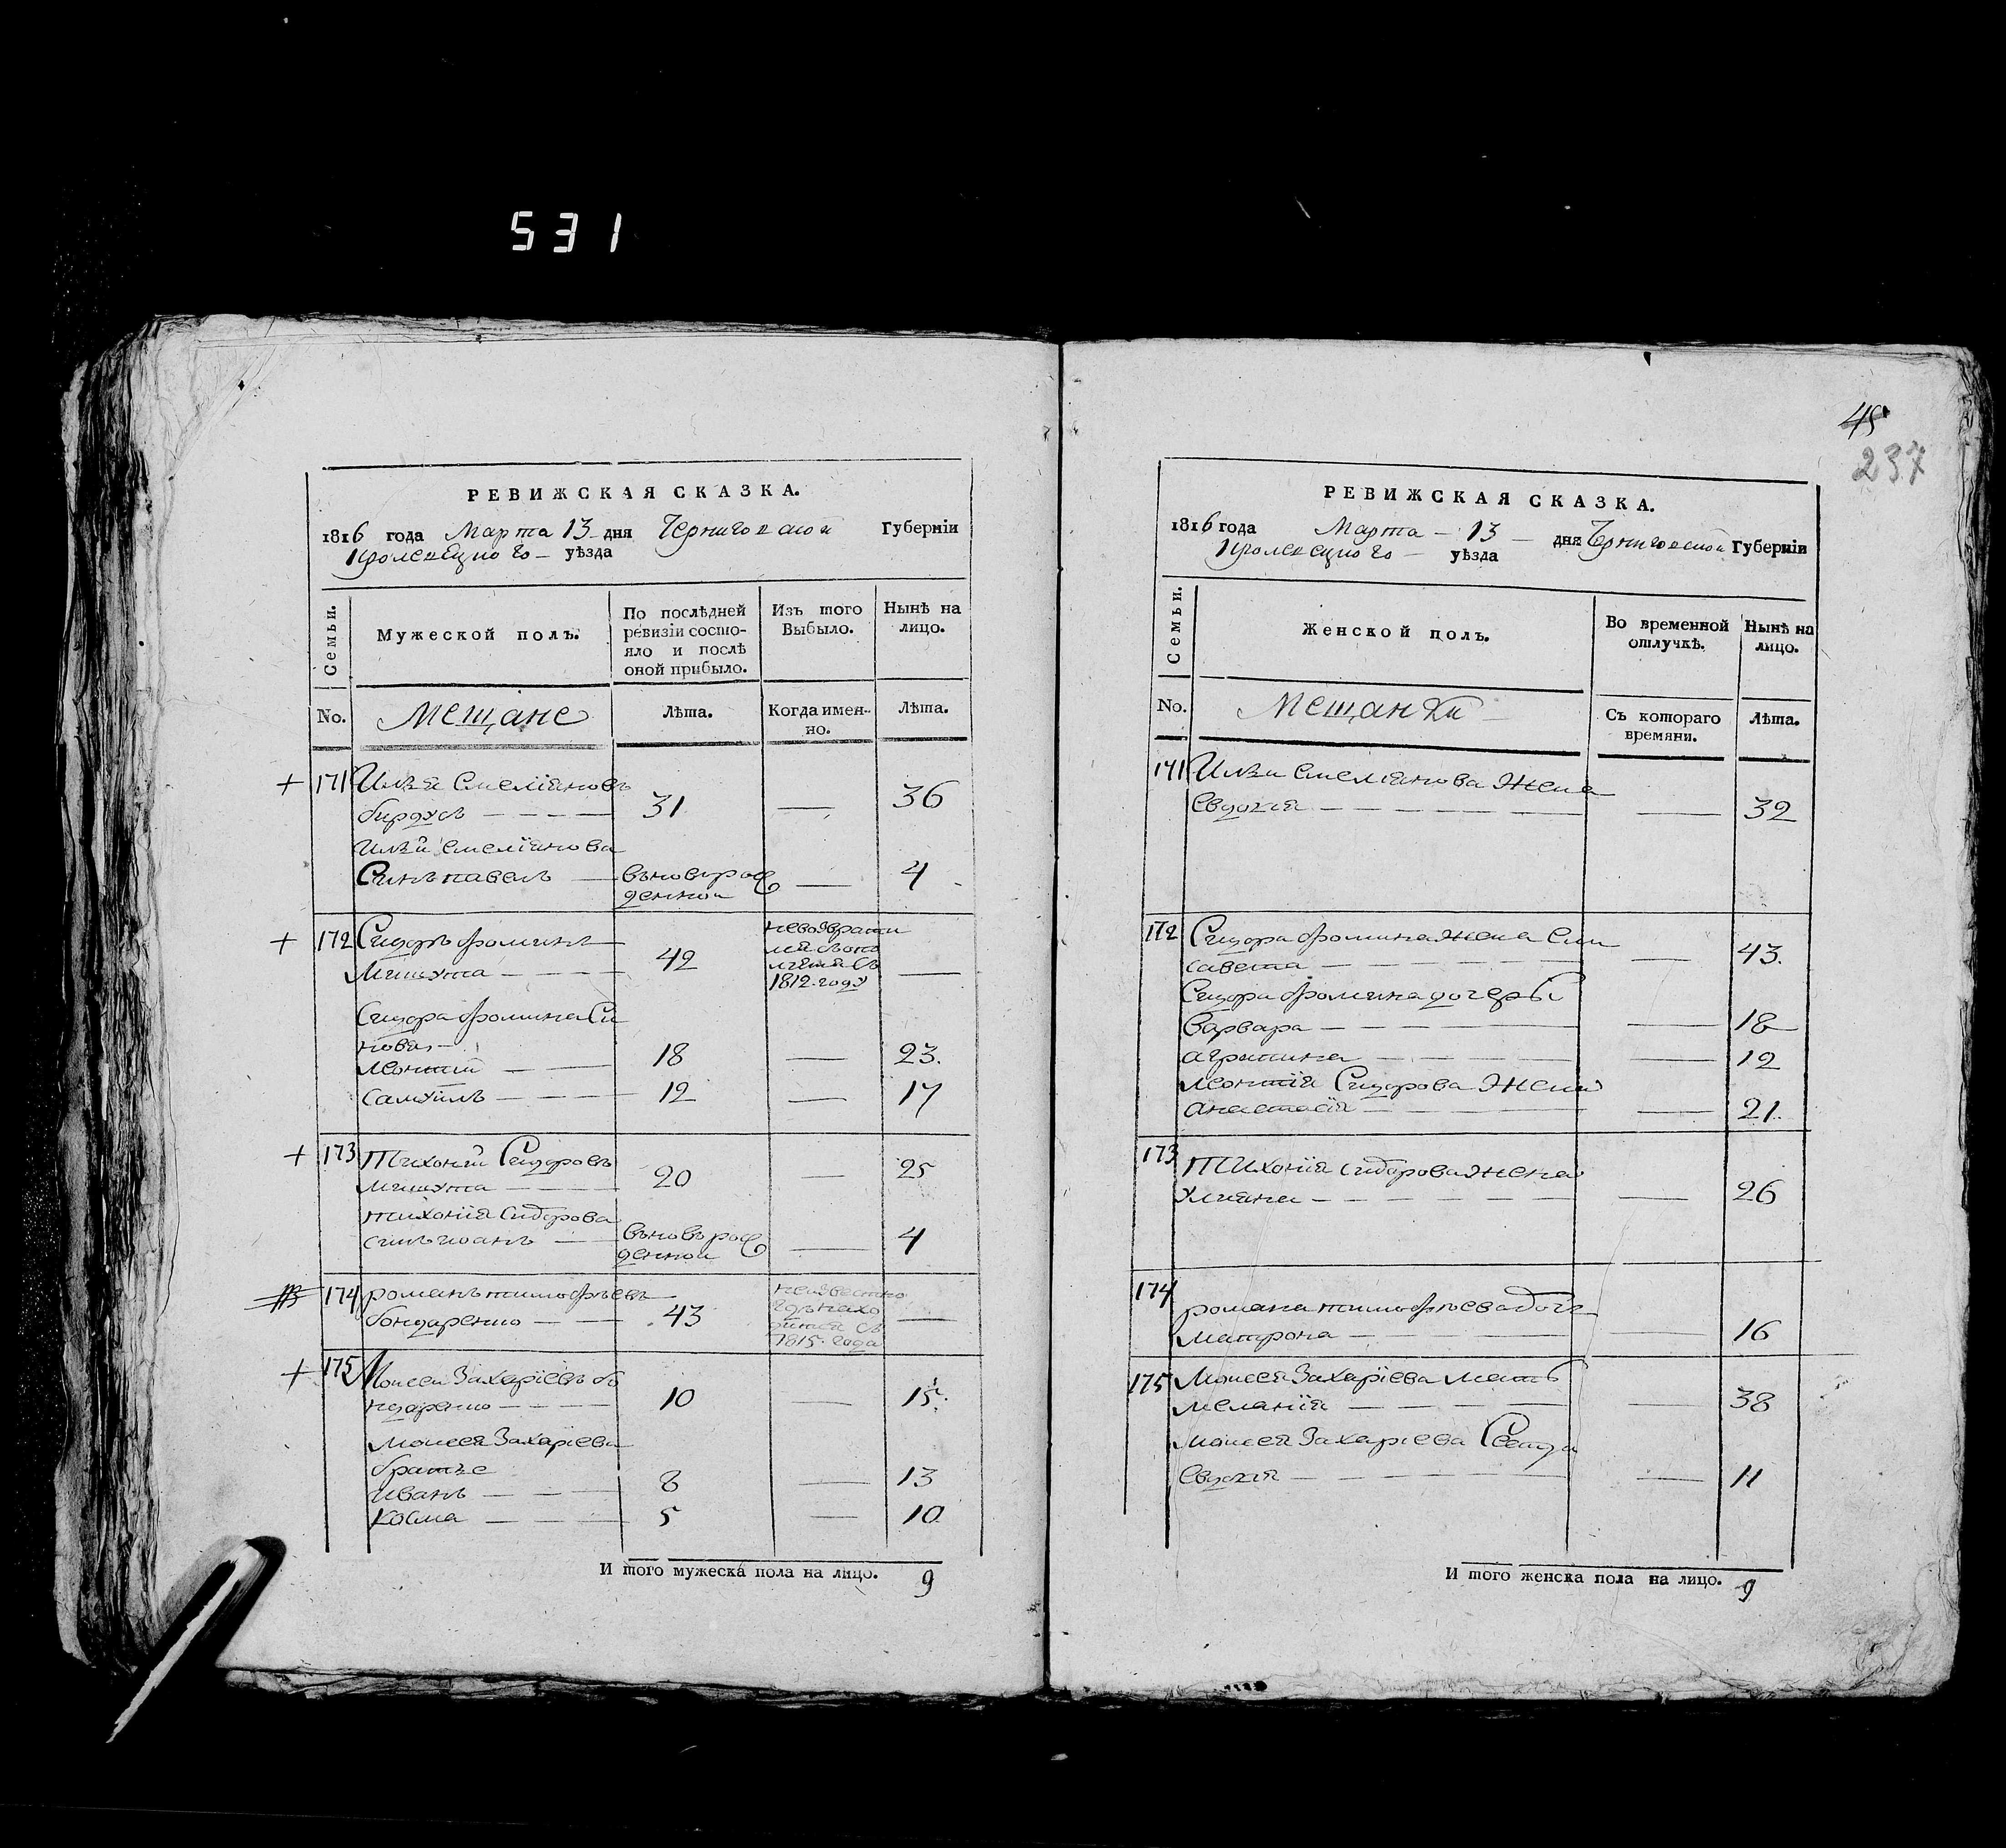 531
45
237
РЕВИЖСКАЯ СКАЗКА.
1816 года Марта 13 дня Черниговской Губерніи
Кролевецкого уѣзда
Семьи.
Мужеской полъ.
По послѣдней ревизіи состо-
яло и послѣ
оной прибыло.
Изъ того
Выбыло.
Нынѣ на
лицо.
No.
Мещане
Лѣта.
Когда имен-
но.
Лѣта.
+ 171 Илѣя Емеліяновъ
бирдусъ 31 — 36
Илѣи емеліянова
Синъ павелъ вънов рож
денной — 4
+ 172 Сидоръ фоминъ
Мишута 42 —
1812 году
Сидора фомина Си
новя
леонтий 18 — 23.
самуилъ 12 — 17
+ 173 Тихоний Сидоровъ
мишута 20 — 25
тихонія Сидорова
синъ иоанъ вновъ рож
денной — 4
174 романъ тимофѣевъ
бондаренко 43 неизвестно
где нахо
дитца съ
1815 года —
+ 175 Моисей Захаріевъ бо
ндаренко 10 — 15.
моисея Захаріева
братъе
иванъ 8 — 13
косма 5 — 10
И того мужеска пола на лицо. 9
РЕВИЖСКАЯ СКАЗКА.
1816 года Марта 13 дня Черниговской Губерніи
Кролевецкого уѣзда
Семьи.
Женской полъ.
Во временной
отлучкѣ.
Нынѣ на
лицо.
No.
Мещанки
Съ котораго
времяни.
Лѣта.
171 Илѣи емеліянова Жена
Евдокія — 32
172 Сидора фомина жена Ели
савета — 43.
Сидора фомина дочеры
Варвара — 18
агрипина — 12
леонтія Сидорова Жена
анастасія — 21.
173 Тихонія сидорова жена
улияна — 26
174
романа тимофѣева доч
матрона — 16
175 Моисея Захаріева мать
меланія — 38
моисея Захариева Сестра
Евдокія — 11
И того женска пола на лицо. 9